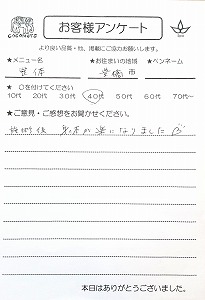 COCONUTS
お客様アンケート
より良い品質・他、掲載にご協力お願いします。
★メニュー名 ★お住まいの地域 ★ペンネーム
整体 豊橋市
★ ○を付けてください
10代 20代 30代 40代 50代 60代 70代〜
★ご意見・ご感想をお聞かせください。
施術後 身体が楽になりました
本日はありがとうございました。